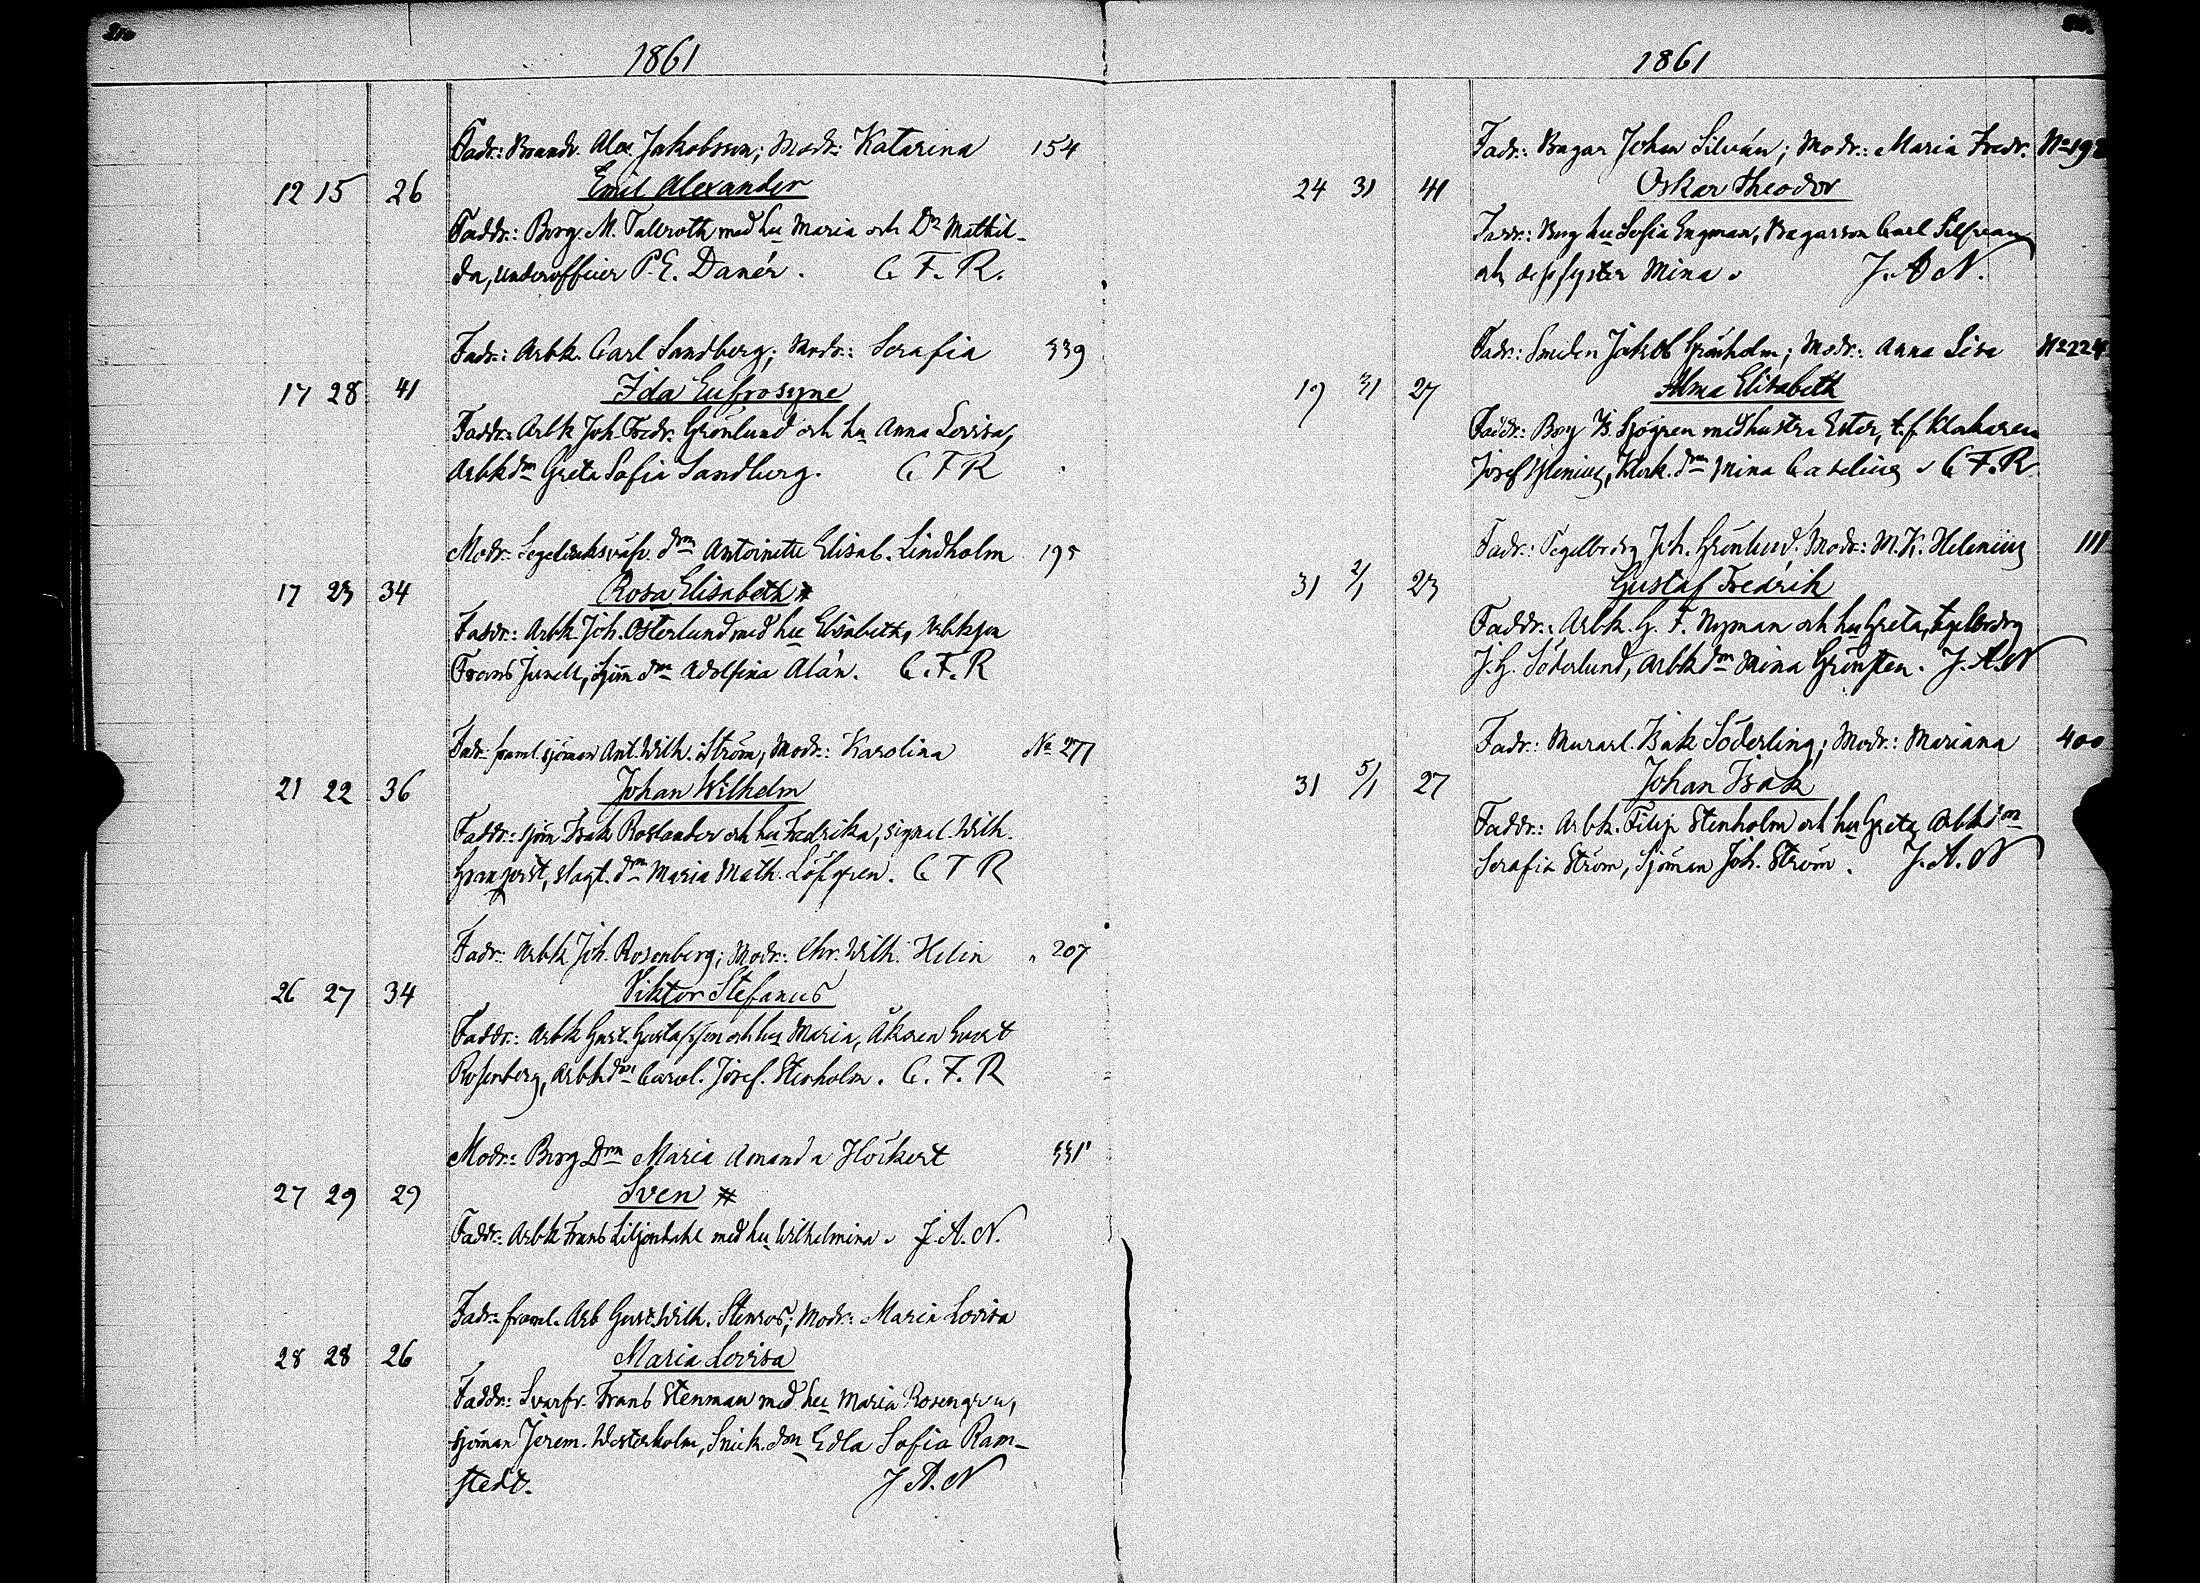 210
1861
Fadr.: Brandv. Alex. Jakobsson; Modr.: Katarina 154
12 15 26 Emil Alexander
Faddr.: Borg. M. Tallroth med hu Maria och Dr Mathil-
da, underofficier P. E. Danér. C. F. R.
Fadr.: Arbk. Carl Sandberg; Modr.: Serafia 339
17 28 41 Ida Eufrosyne
Faddr.: Arbk Joh. Fredr. Grönlund och hu Anna Lovisa,
Arbkdm Greta Sofia Sandberg. C F R
Modr.: dm Antoinette Elisab. Lindholm 195
17 23 34 Rosa Elisabeth #
Faddr.: Arbk. Joh. Österlund med hu Elisabeth, Arbkson
Frans Junell, Sjöm dm Adolfina Alán. C. F. R
Fadr.: framl. sjöman Ant. Wilh. Ström; Modr.: Karolina No 277
21 22 36 Johan Wilhelm
Faddr.: sjöm Isak Roslander och hu Fredrika, signal. Wilh.
Granqvist, slagt. dm Maria Math. Löfgren. C F R
Fadr.: Arbk Joh. Rosenberg; Modr.: Chr. Wilh. Helin " 207
26 27 34 Viktor Stefanus
Faddr.: Arbk Gust. Gustafsson och hu Maria, Åkaren Evert
Rosenberg, Arbkdm Carol. Josef. Stenholm. C. F. R
Modr.: Borg Dm Maria Amanda Höckert 331
27 29 29 Sven #
Faddr.: Arbk Frans Liljendahl med hu Wilhelmina. J. A. N.
Fadr.: framl. Arb Gust. Wilh. Stenros; Modr.: Maria Lovisa
28 28 26 Maria Lovisa
Faddr.: Svarfv. Frans Stenman med hu Maria Rosengren,
sjöman Jerem. Westerholm, Snick. dm Edla Sofia Ram-
stedt. J A. N
1861
Fadr.: Bagar Johan Silván; Modr.: Maria Fredr. No 198
24 31 41 Oskar Theodor
Faddr.: Borg hu Sofia Engman, Bagarson Carl
och dess syster Mina. J. A N.
Fadr.: Smeden Jakob Grönholm; Modr.: Anna Lisa No 224
19 31 27 Alma Elisabeth
Faddr.: Borg Is. Sjögren med hustru Ester, t.f. klockaren
Josef Helenius, Klock. dm Mina Caselius. C F. R
Fadr.: Tegelbrdrg Joh. Grönlund; Modr.: M. K. Helenius 111
31 2/1 23 Gustaf Fredrik
Faddr.: Arbk. G. F. Nyman och hu Greta, tegelbrdrg
J. G. Söderlund, Arbk dm Mina Grönsten. J. A. N
Fadr.: Murarl. Isak Söderling; Modr.: Mariana 400
31 5/1 27 Johan Isak
Faddr.: Arbk. Filip Stenholm och hu Greta, Arbkdm
Serafia Ström, Sjöman Joh. Ström. J. A. N